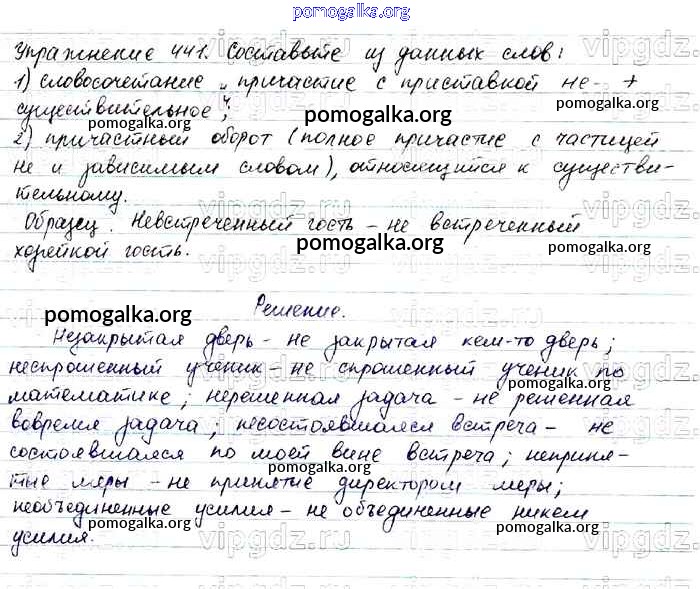 pomogalka.org
Упражнение 441. Составьте из данных слов:
1) словосочетание „причастие с приставкой не- +
существительное“;
2) причастный оборот (полное причастие с частицей
не и зависимым словом), относящийся к существи-
тельному.
Образец. Невстреченный гость – не встреченный
хозяйкой гость.
Решение.
Незакрытая дверь – не закрытая кем-то дверь;
неспрошенный ученик – не спрошенный ученик по
математике; нерешенная задача – не решенная
вовремя задача; несостоявшаяся встреча – не
состоявшаяся по моей вине встреча; неприня-
тые меры – не принятые директором меры;
необъединенные усилия – не объединенные никем
усилия.
pomogalka.org
pomogalka.org
pomogalka.org
pomogalka.org
pomogalka.org
pomogalka.org
pomogalka.org
pomogalka.org
pomogalka.org
pomogalka.org
vipgdz.ru